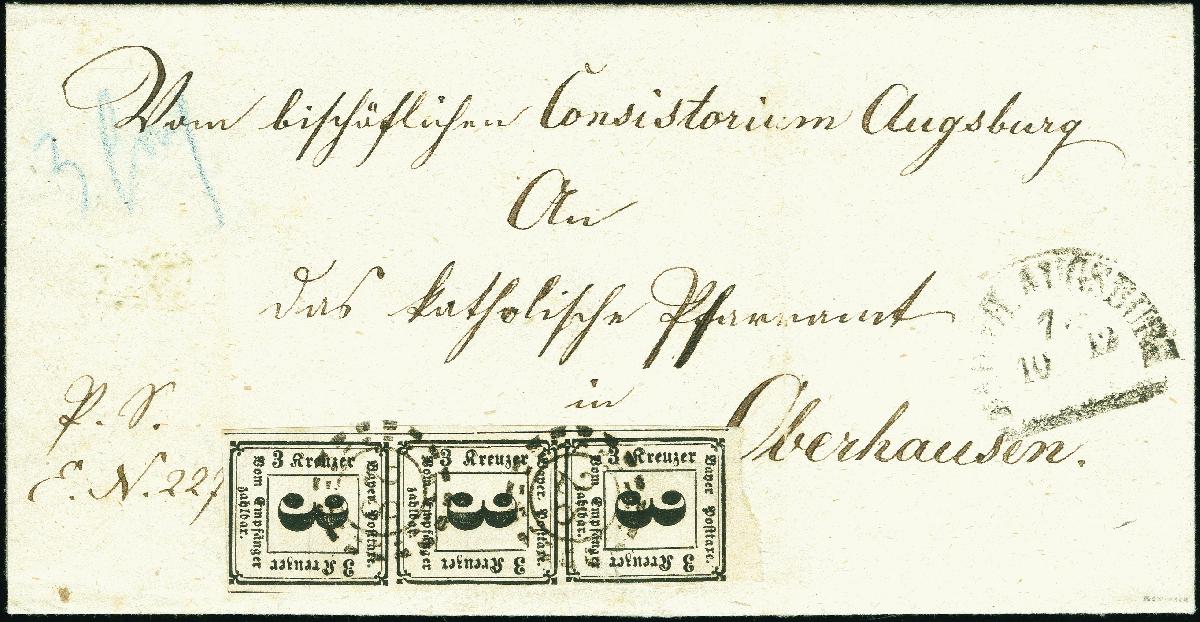 Vom bischöflichen Consistorium Augsburg
An
das katholische Pfarramt
in
Oberhausen.
P. S.
E. N. 227
3
AUGSBURG
7
10 12
3 Kreuzer
Bayer. Posttaxe.
Vom Empfänger
zahlbar.
3 Kreuzer
3
3 Kreuzer
Bayer. Posttaxe.
Vom Empfänger
zahlbar.
3 Kreuzer
3
3 Kreuzer
Bayer. Posttaxe.
Vom Empfänger
zahlbar.
3 Kreuzer
3